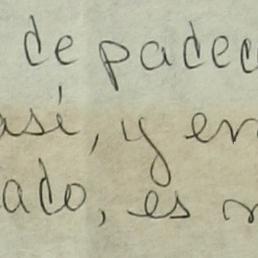 de padec
así, y en
ado, es